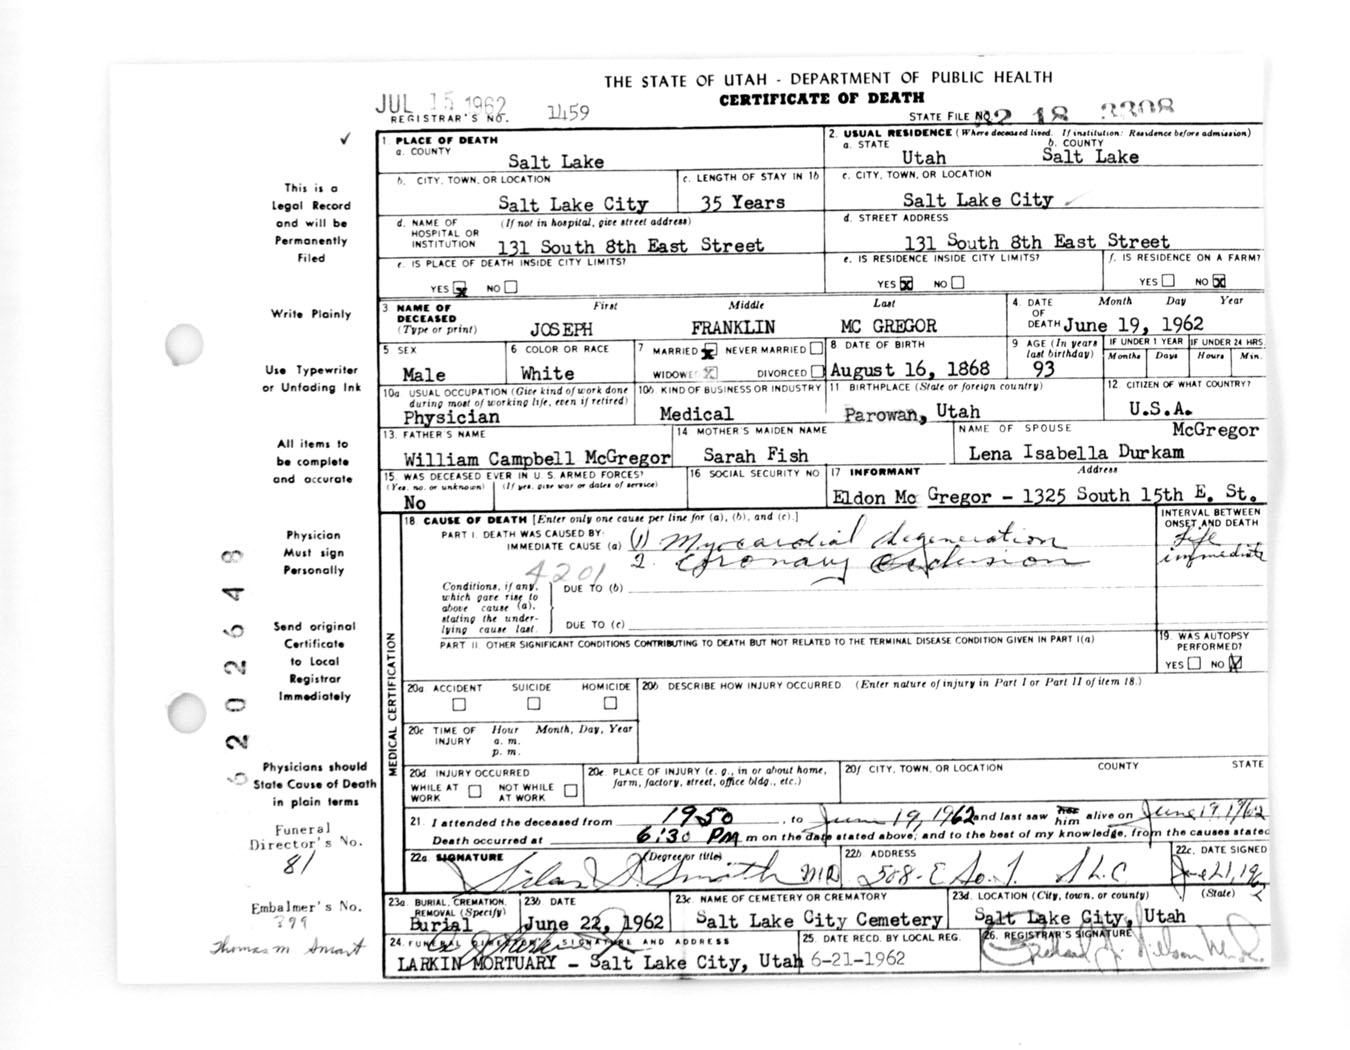 THE STATE OF UTAH - DEPARTMENT OF PUBLIC HEALTH
CERTIFICATE OF DEATH
JUL 15 1962
REGISTRAR'S NO. 1459
STATE FILE NO. 18 3308
✓
1. PLACE OF DEATH
a. COUNTY
Salt Lake
2. USUAL RESIDENCE (Where deceased lived. If institution: Residence before admission)
a. STATE b. COUNTY
Utah Salt Lake
b. CITY, TOWN, OR LOCATION
Salt Lake City
c. LENGTH OF STAY IN 1b
35 Years
c. CITY, TOWN, OR LOCATION
Salt Lake City
d. NAME OF HOSPITAL OR INSTITUTION (If not in hospital, give street address)
131 South 8th East Street
d. STREET ADDRESS
131 South 8th East Street
e. IS PLACE OF DEATH INSIDE CITY LIMITS?
YES X NO
e. IS RESIDENCE INSIDE CITY LIMITS?
YES X NO
f. IS RESIDENCE ON A FARM?
YES NO X
3 NAME OF DECEASED (Type or print)
First Middle Last
JOSEPH FRANKLIN MC GREGOR
4. DATE OF DEATH Month Day Year
June 19, 1962
5 SEX
Male
6 COLOR OR RACE
White
7 MARRIED X NEVER MARRIED
WIDOWED X DIVORCED
8 DATE OF BIRTH
August 16, 1868
9 AGE (In years last birthday)
93
IF UNDER 1 YEAR IF UNDER 24 HRS.
Months Days Hours Min.
10a USUAL OCCUPATION (Give kind of work done during most of working life, even if retired)
Physician
10b. KIND OF BUSINESS OR INDUSTRY
Medical
11 BIRTHPLACE (State or foreign country)
Parowan, Utah
12 CITIZEN OF WHAT COUNTRY?
U.S.A.
13. FATHER'S NAME
William Campbell McGregor
14 MOTHER'S MAIDEN NAME
Sarah Fish
NAME OF SPOUSE McGregor
Lena Isabella Durkam
15. WAS DECEASED EVER IN U.S. ARMED FORCES?
(Yes, no, or unknown) (If yes, give war or dates of service)
No
16 SOCIAL SECURITY NO
17 INFORMANT Address
Eldon Mc Gregor - 1325 South 15th E. St.
MEDICAL CERTIFICATION
18 CAUSE OF DEATH [Enter only one cause per line for (a), (b), and (c).]
PART I. DEATH WAS CAUSED BY:
IMMEDIATE CAUSE (a) (1) Myocardial degeneration
2. Coronary occlusion
INTERVAL BETWEEN ONSET AND DEATH
immediate
4201
Conditions, if any, which gave rise to above cause (a), stating the underlying cause last.
DUE TO (b)
DUE TO (c)
PART II. OTHER SIGNIFICANT CONDITIONS CONTRIBUTING TO DEATH BUT NOT RELATED TO THE TERMINAL DISEASE CONDITION GIVEN IN PART I(a)
19. WAS AUTOPSY PERFORMED?
YES NO X
20a ACCIDENT SUICIDE HOMICIDE
20b DESCRIBE HOW INJURY OCCURRED (Enter nature of injury in Part I or Part II of item 18.)
20c TIME OF INJURY Hour Month, Day, Year
a. m.
p. m.
20d INJURY OCCURRED
WHILE AT WORK NOT WHILE AT WORK
20e. PLACE OF INJURY (e. g., in or about home, farm, factory, street, office bldg., etc.)
20f. CITY, TOWN, OR LOCATION COUNTY STATE
21. I attended the deceased from 1950, to June 19, 1962 and last saw him alive on June 19, 1962
Death occurred at 6:30 PM m on the date stated above; and to the best of my knowledge, from the causes stated
22a SIGNATURE (Degree or title)
Silas S. Smith M.D.
22b. ADDRESS
508 - E So. T. S L C
22c. DATE SIGNED
June 21, 1962
23a. BURIAL, CREMATION, REMOVAL (Specify)
Burial
23b DATE
June 22, 1962
23c. NAME OF CEMETERY OR CREMATORY
Salt Lake City Cemetery
23d. LOCATION (City, town, or county) (State)
Salt Lake City, Utah
24. FUNERAL DIRECTOR'S SIGNATURE AND ADDRESS
LARKIN MORTUARY - Salt Lake City, Utah
25. DATE RECD. BY LOCAL REG.
6-21-1962
26. REGISTRAR'S SIGNATURE
This is a
Legal Record
and will be
Permanently
Filed
Write Plainly
Use Typewriter
or Unfading Ink
All items to
be complete
and accurate
Physician
Must sign
Personally
Send original
Certificate
to Local
Registrar
Immediately
Physicians should
State Cause of Death
in plain terms
Funeral
Director's No.
81
Embalmer's No.
399
Thomas M. Smart